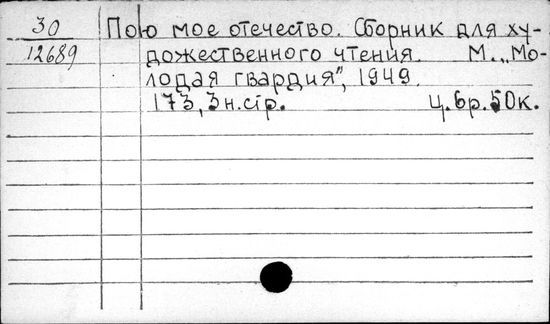 30
12689
Пою мое отечество. Сборник для ху-
дожественного чтения. М. „Мо-
лодая гвардия", 1949.
173, 3 н.стр. Ц. 6р. 50к.